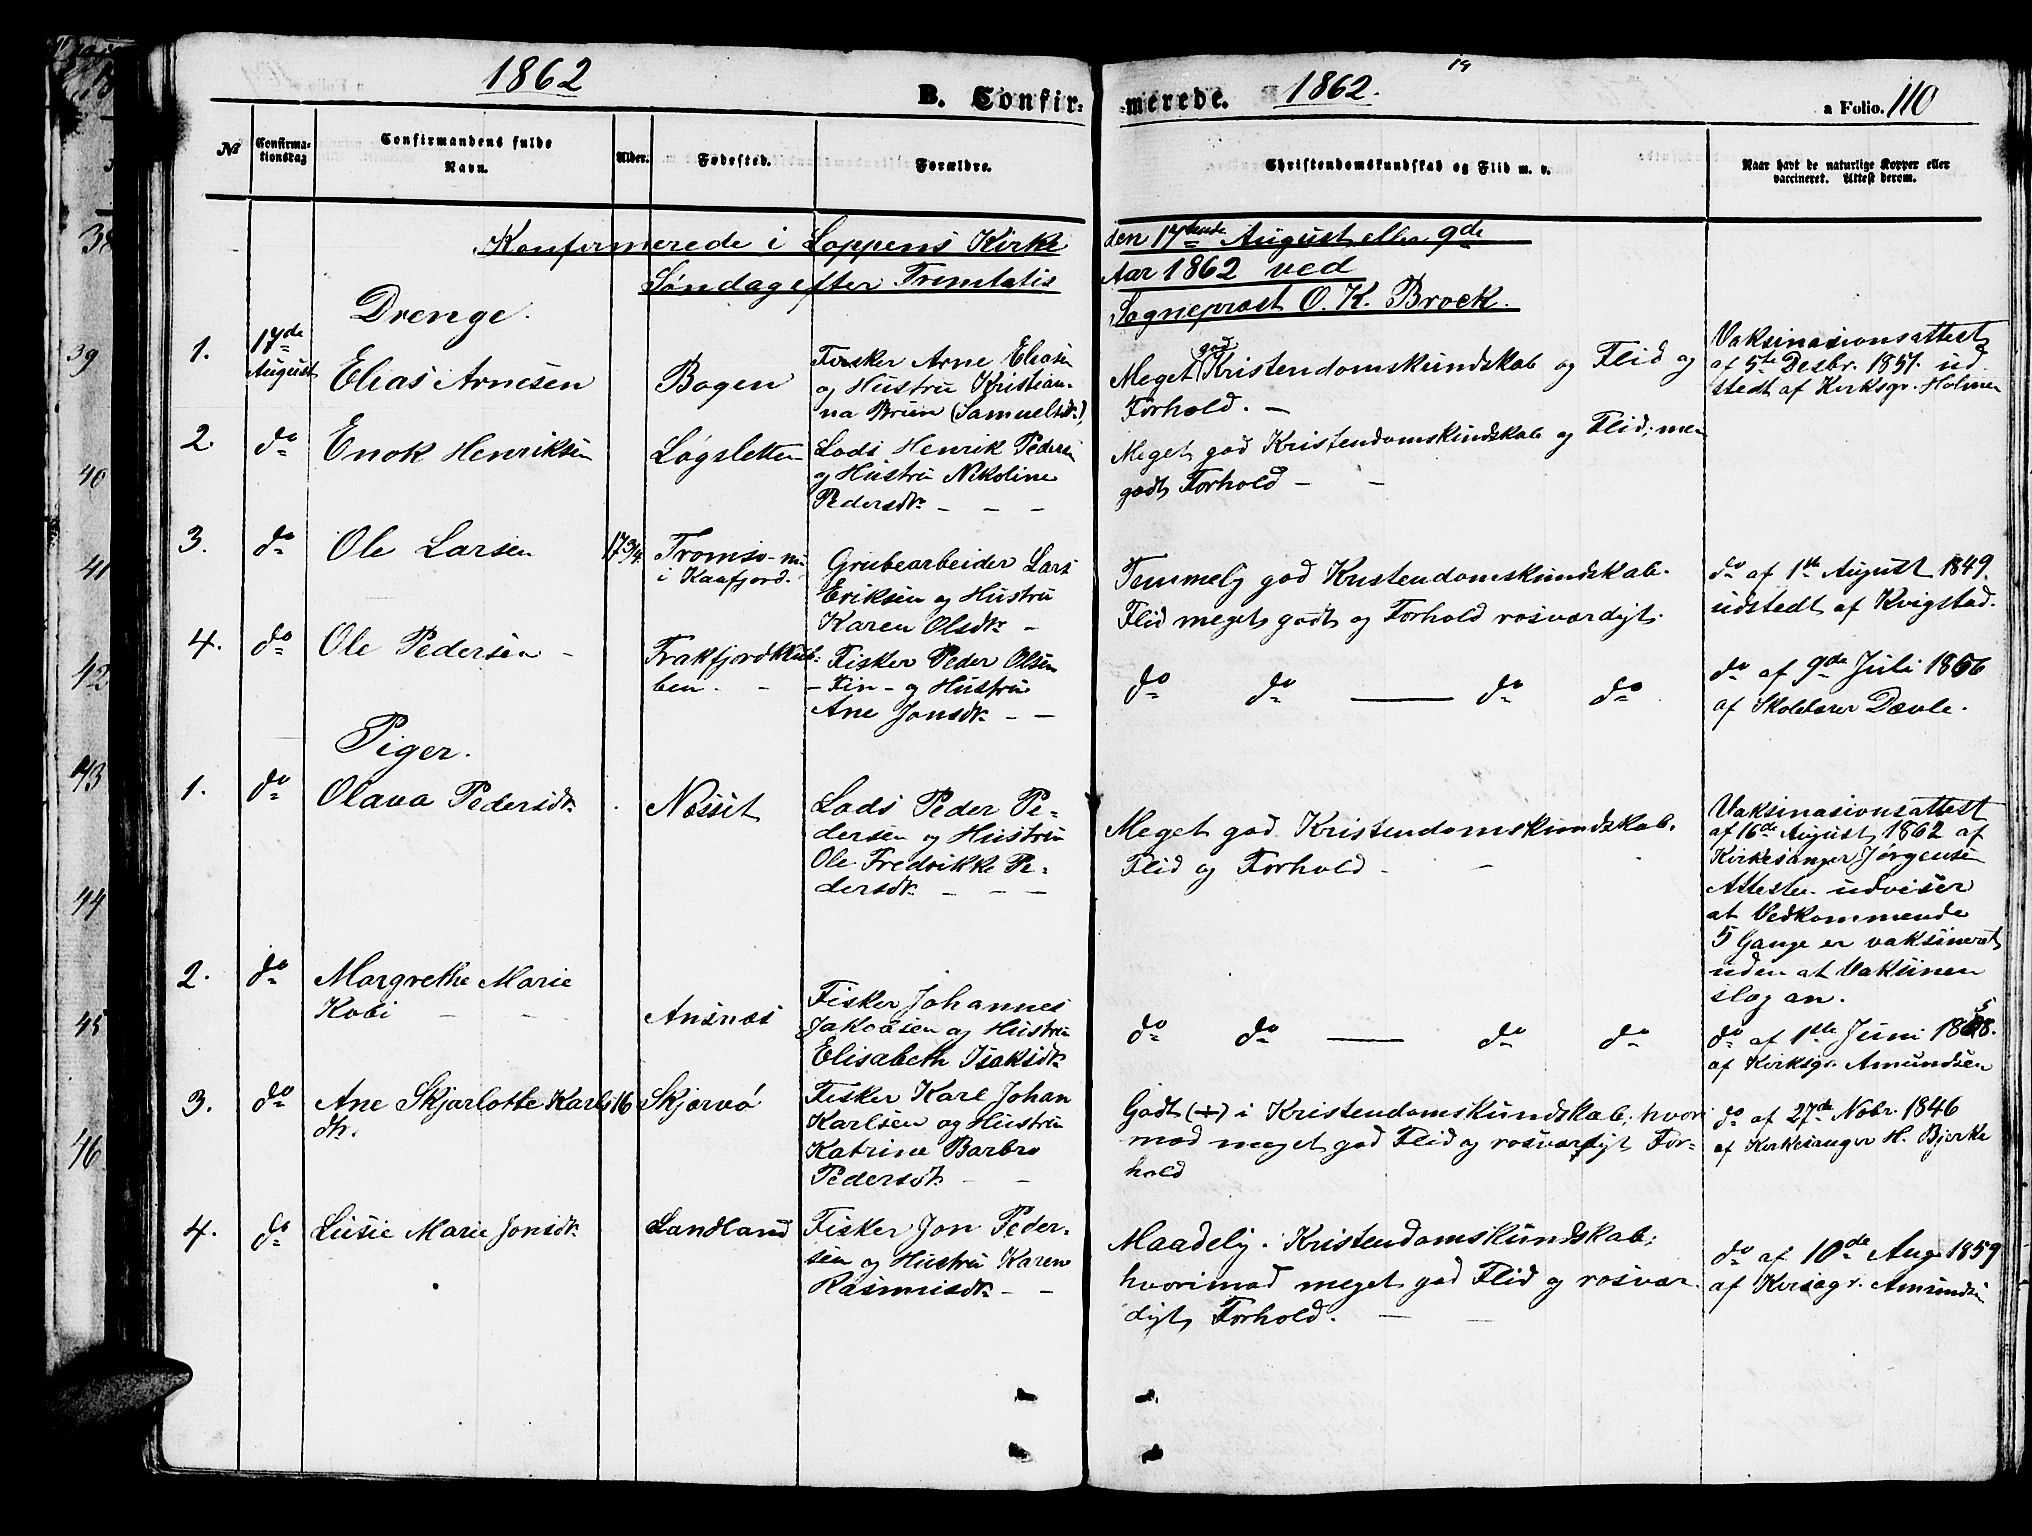 1862
B. Confir-
-merede.
1862.
19
a Folio. 110
№
Confirma-
tionsdag
Confirmandens fulde
Navn.
Alder.
Fødested.
Forældre.
Christendomskundskab og Flid m. v.
Naar havt de naturlige Kopper eller
vaccineret. Attest derom.
Konfirmerede i Loppens Kirke den 17tende August eller 9de
Søndag efter Trinitatis Aar 1862 ved
Sogneprest O. K. Brock.
Drenge.
1.
17de
August
Elias Arnesen
Bogen
Fisker Arne Eliasen
og Hustru Kristian-
na Brun (Samuelsdr.)
Meget god Kristendomskundskab og Flid og
Forhold. —
Vaksinasionsattest
af 5te Desbr. 1851. ud
stedt af Kirksgr. Holmen
2.
do
Enok Henriksen
Løgsletten
Lods Henrik Pedersen
og Hustru Nikoline
Pedersdtr. — — —
Meget god Kristendomskundskab og Flid; men
godt Forhold — —
3.
do
Ole Larsen
17 3/4
i Kaafjord.
Grubearbeider Lars
Eriksen og Hustru
Karen Olsdtr. —
Temmelig god Kristendomskundskab.
Flid meget godt og Forhold rosværdigt.
do af 1te August 1849.
udstedt af Kvigstad.
4.
do
Ole Pedersen —
Frakfjordklub-
ben. —
Fisker Peder Olsen
— Fin — og Hustru
Ane Jonsdtr. — —
do do — do do
do af 9de Juli 1866
af Skolelærer Dævle.
Piger.
1.
do
Olava Pedersdtr.
Nesset
Lods Peder Pe-
dersen og Hustru
Ole. Fredrikke Pe-
dersdtr. — — —
Meget god Kristendomskundskab.
Flid og Forhold — —
Vaksinasionsattest
af 16de August 1862 af
Kirkesanger Jørgensen
Attesten udviser
at Vedkommende
5 Gange er vaksineret
uden at Vaksinen
slog an.
2.
do
Margrethe Marie
Kobi — —
Ansnes
Fisker Johannes
Jakobsen og Hustru
Elisabeth Isaksdtr.
do do — do do
do af 1te Juni 1858.
af Kirksgr. Amundsen
3.
do
Ane Skjarlotte Karls
dtr.
16
Skjervø
Fisker Karl Johan
Karlsen og Hustru
Katrine Barbro
Pedersdtr. — —
Godt (+) i Kristendomskundskab; hvori
mod meget god Flid og rosværdigt For-
hold
do af 27de Nobr. 1846
af Kirkesanger H. Bjerke
4.
do
Lusie Marie Jonsdtr.
Sandland
Fisker Jon Peder-
sen og Hustru Karen
Rasmusdtr. — —
Maadelig. Kristendomskundskab;
hvorimod meget god Flid og rosvær-
digt Forhold. — —
do af 10de Aug. 1859
af Kirsagr. Amundsen
39
40
41
42
43
44
45
46